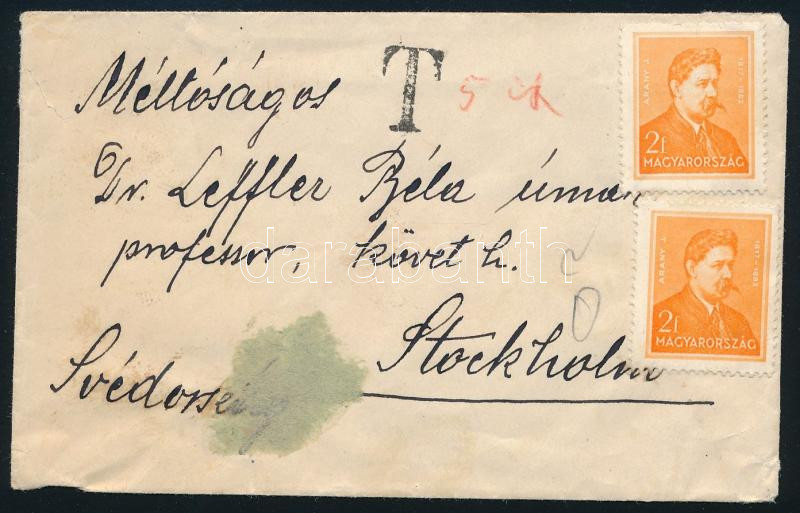 T
Méltóságos
Dr. Leffler Béla úrnak
professor, követ h.
Stockholm
Svédország
ARANY J. 1817-1882
2f
MAGYARORSZÁG
ARANY J. 1817-1882
2f
MAGYARORSZÁG
darabanth